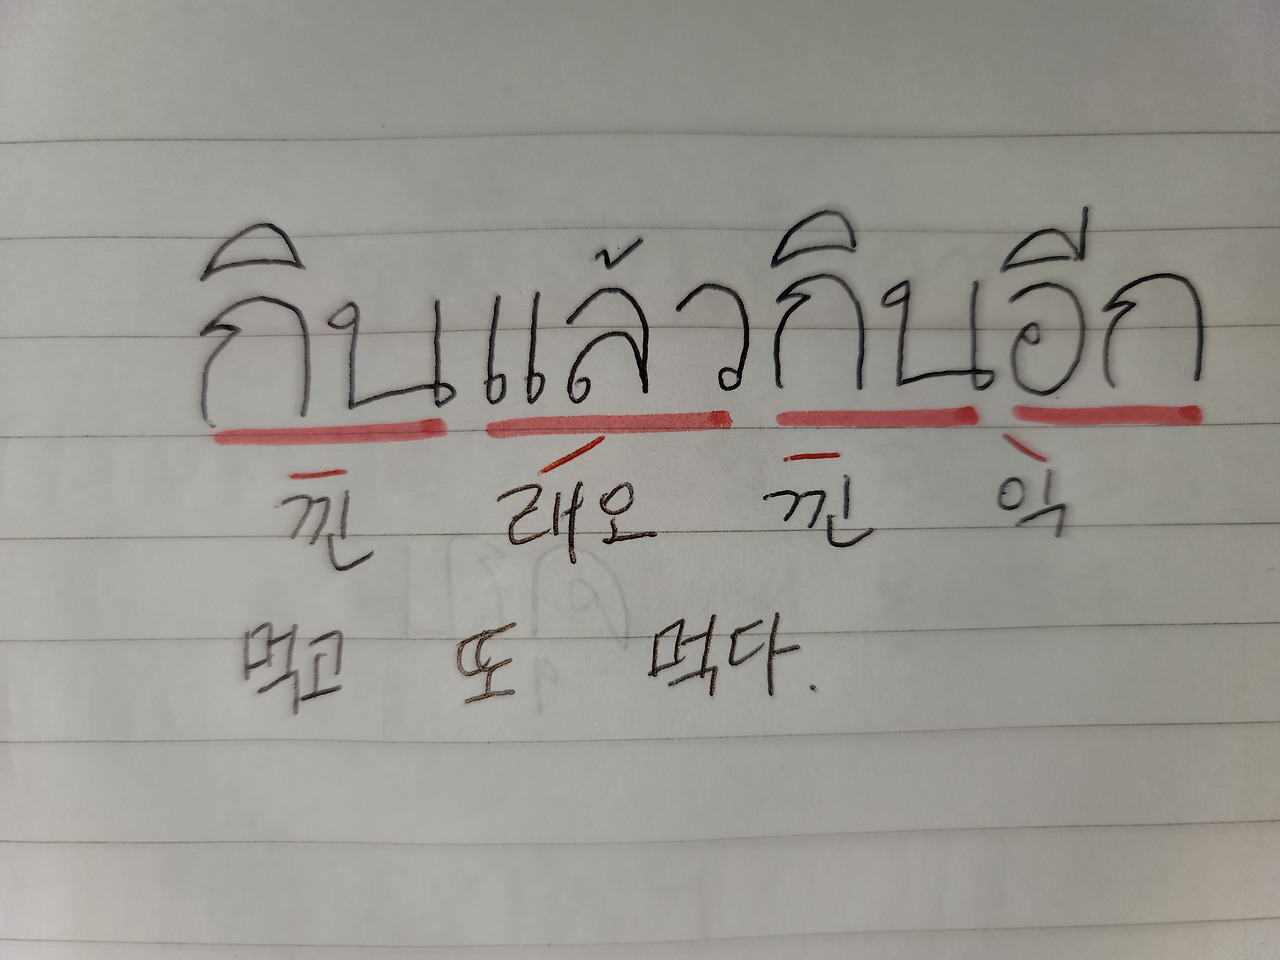 กินแล้วกินอีก
낀 래오 낀 익
먹고 또 먹다.